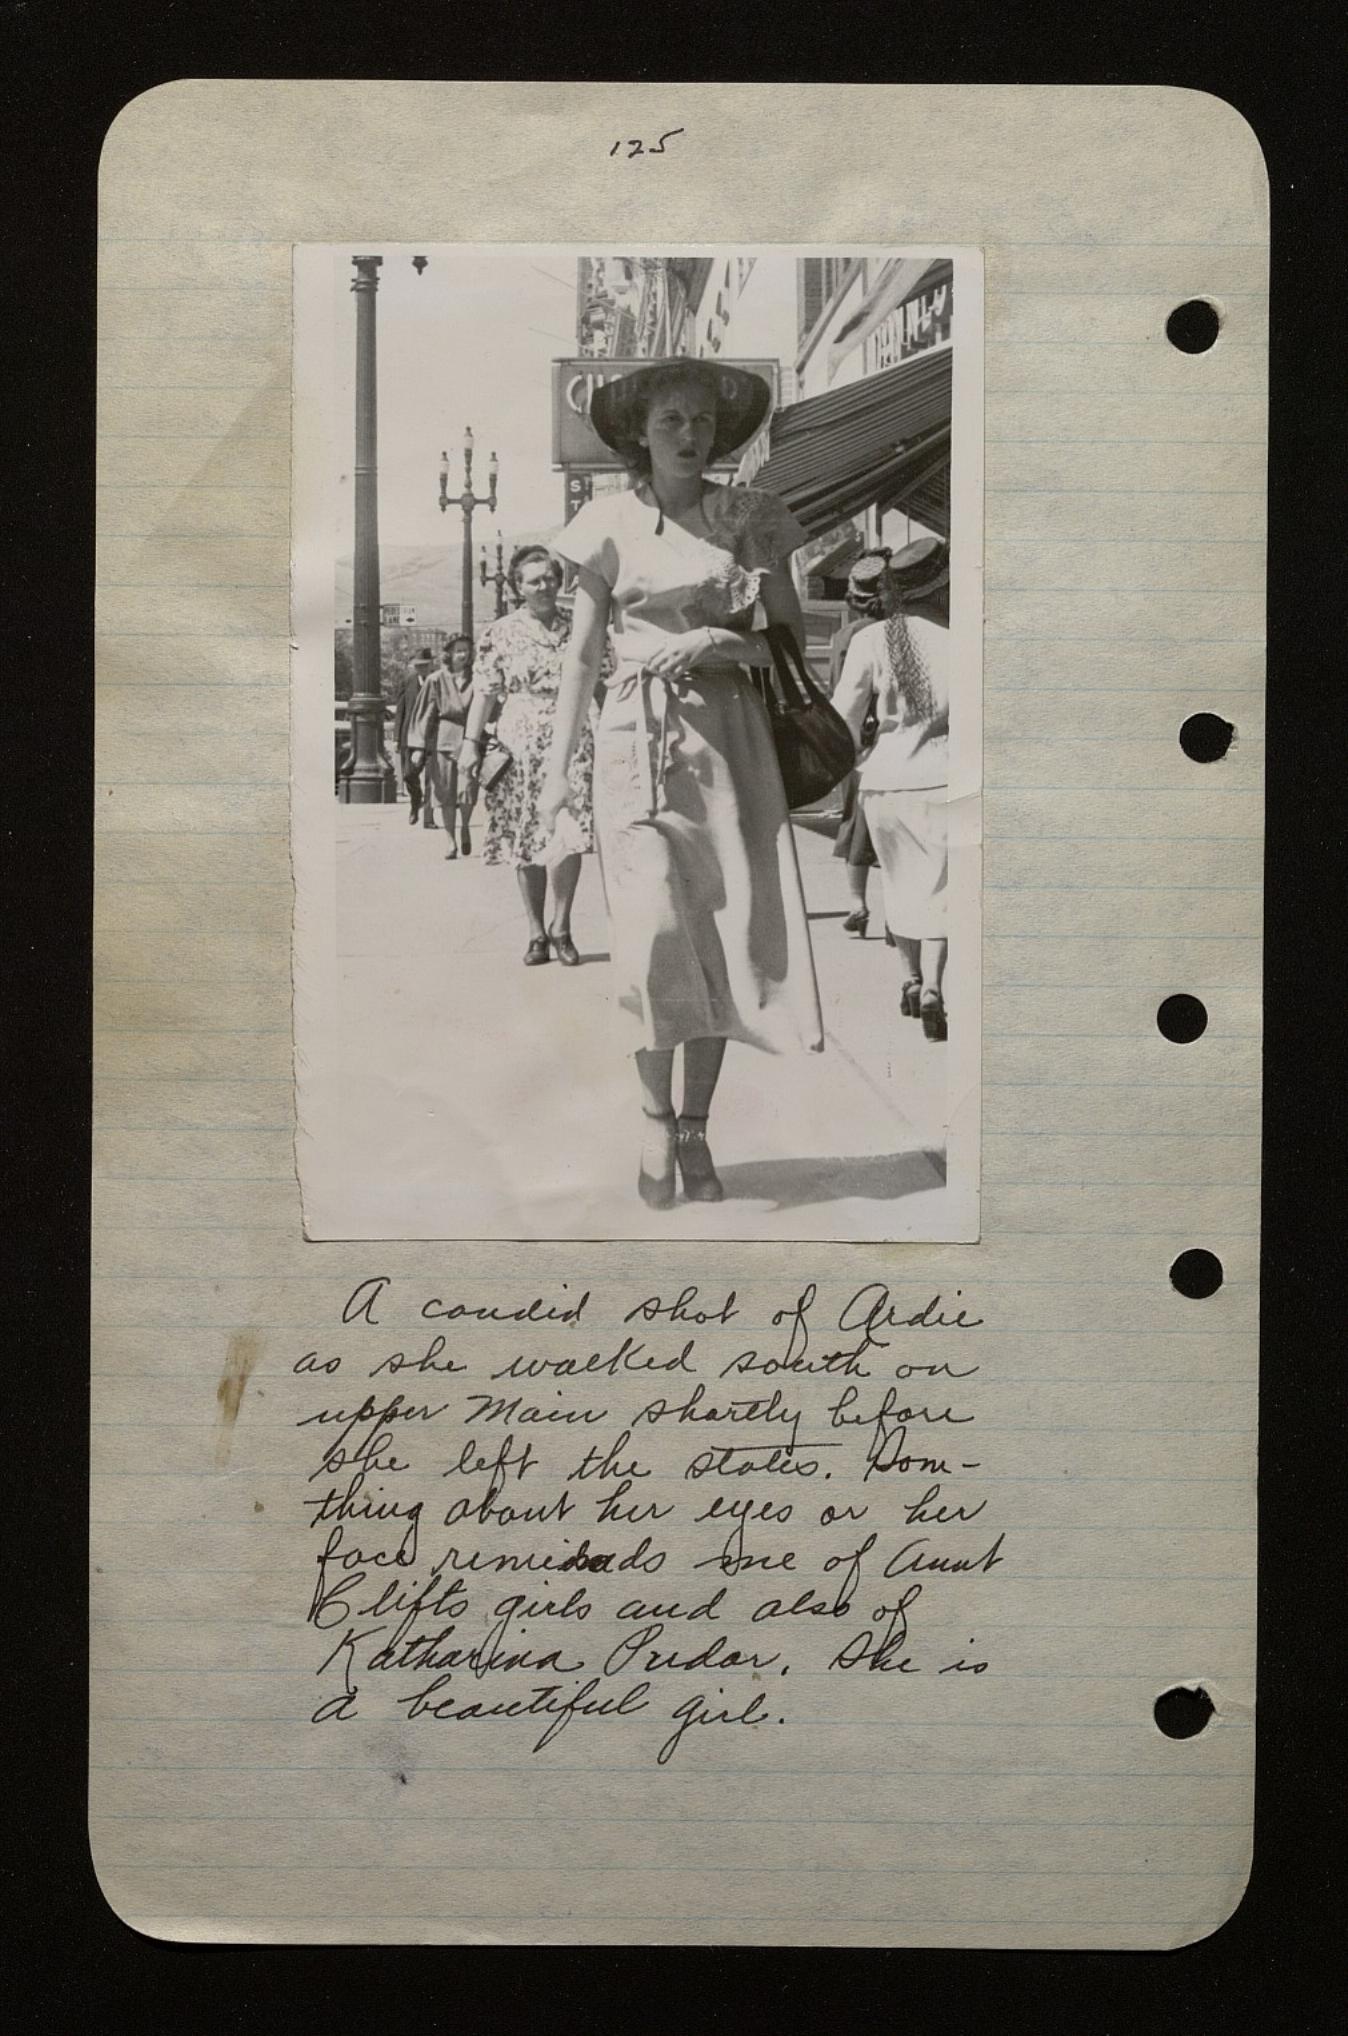 125
S
T
A candid shot of Ardie
as she walked south on
upper Main shortly before
she left the states. Som-
thing about her eyes or her
face reminds me of Aunt
Clifts girls and also of
Katharina Pudar. She is
a beautiful girl.